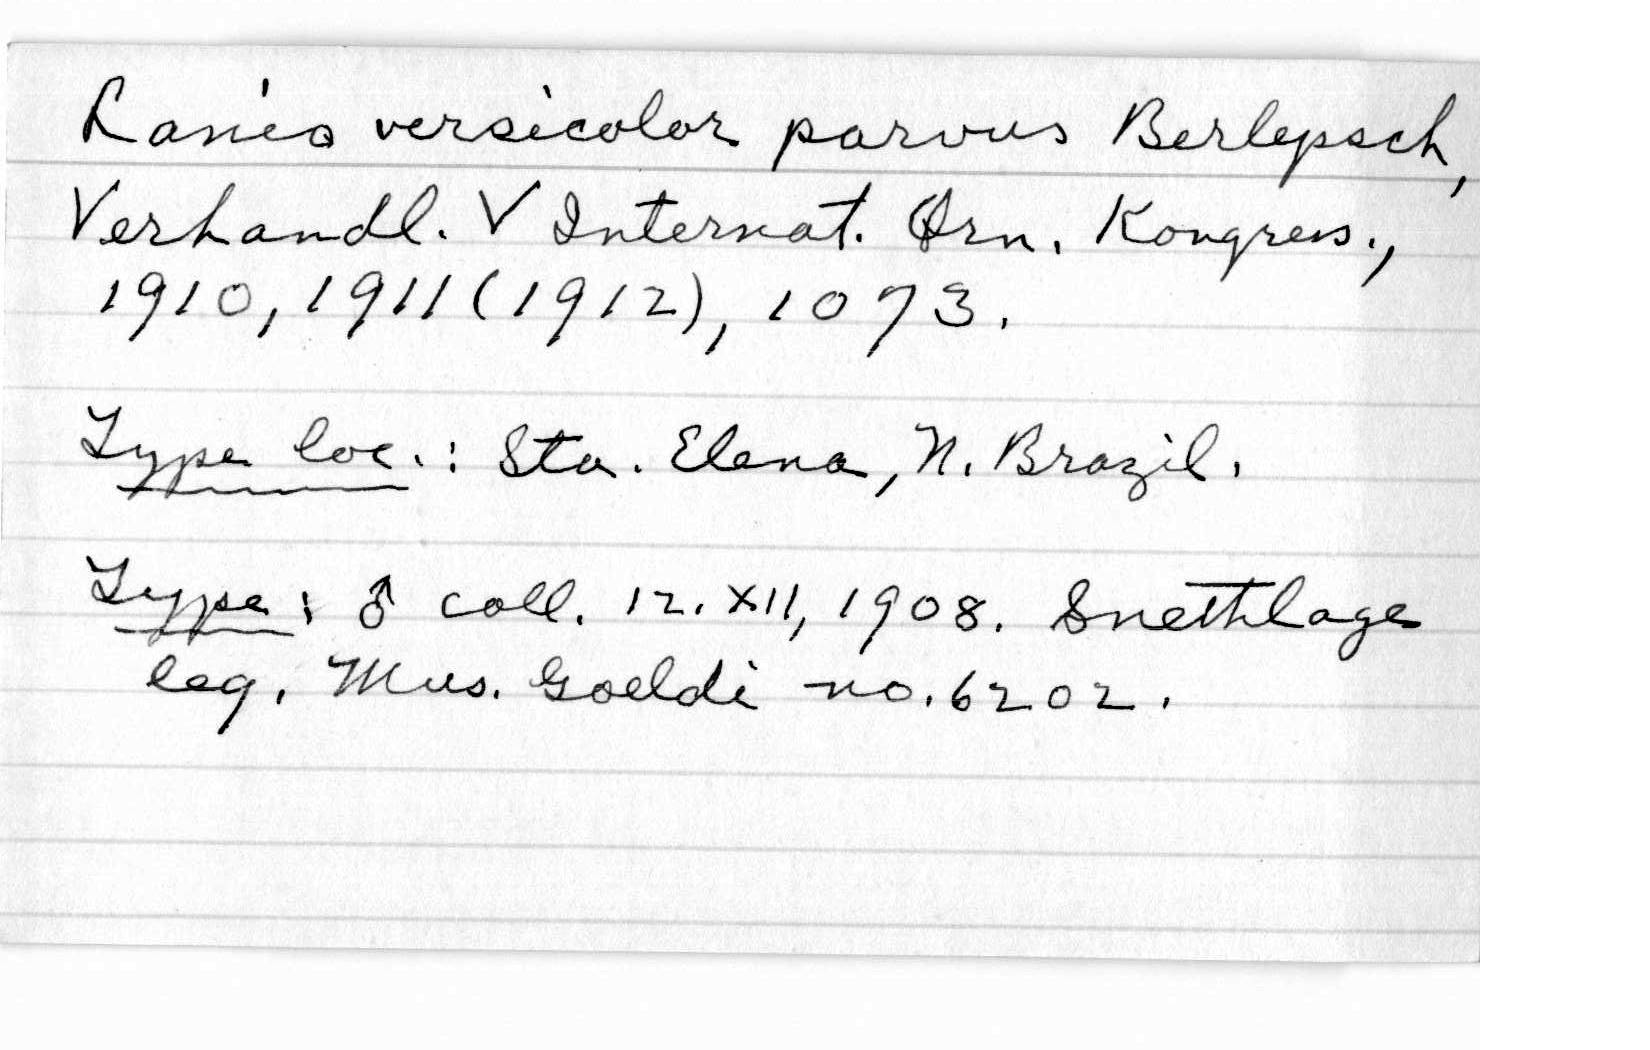 Lanio versicolor parvus Berlepsch,
Verhandl. V Internat. Orn. Kongress.,
1910, 1911 (1912), 1073.
Type loc.: Sta. Elena, N. Brazil.
Type: ♂ coll. 12. XII, 1908. Snethlage
leg. Mus. Goeldi no. 6202.